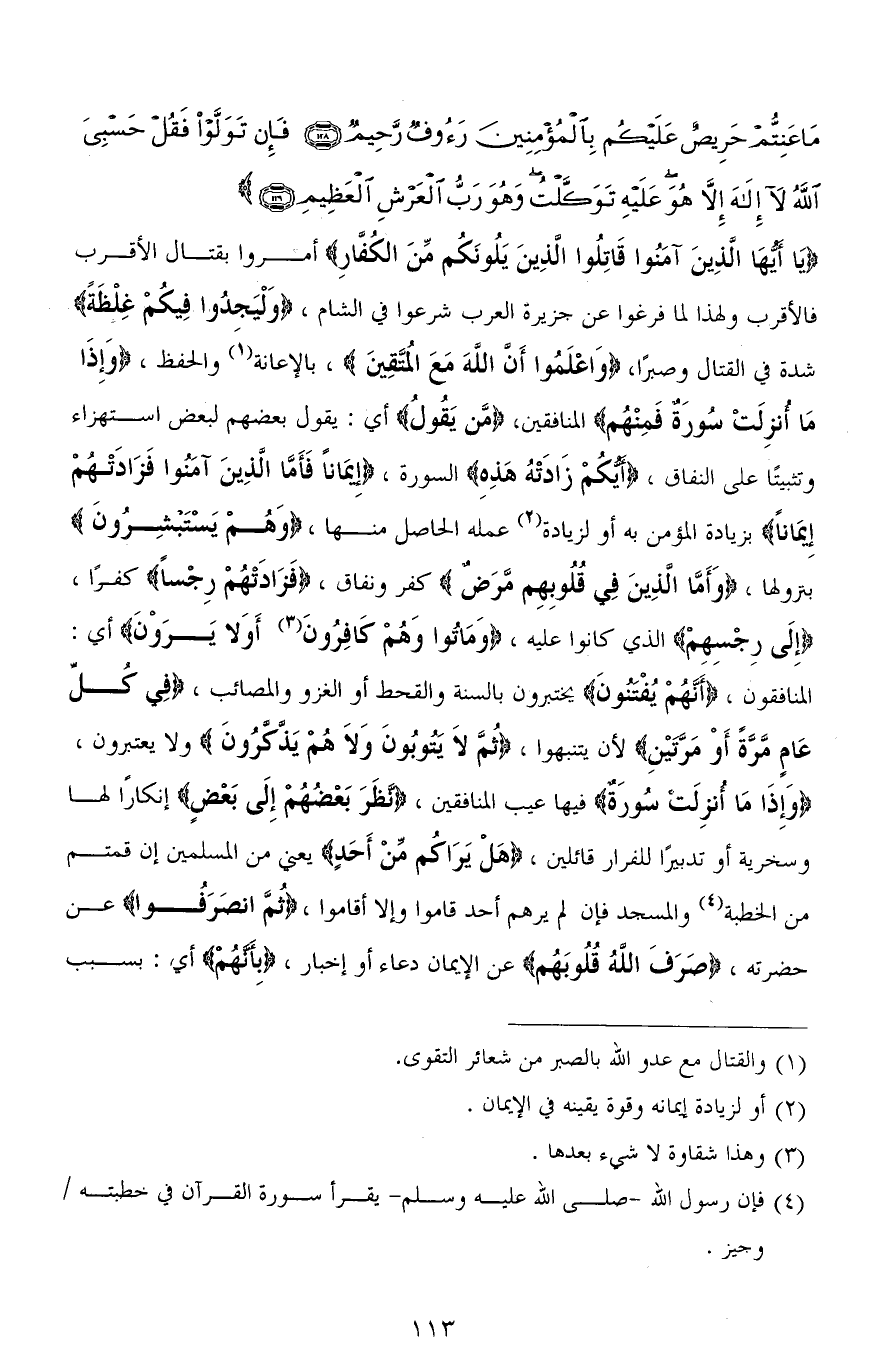 مَا عَنِتُّمْ حَرِيصٌ عَلَيْكُم بِالْمُؤْمِنِينَ رَءُوفٌ رَّحِيمٌ ﴿١٢٨﴾ فَإِن تَوَلَّوْا فَقُلْ حَسْبِيَ
اللَّهُ لَآ إِلَٰهَ إِلَّا هُوَ عَلَيْهِ تَوَكَّلْتُ وَهُوَ رَبُّ الْعَرْشِ الْعَظِيمِ ﴿١٢٩﴾ ﴾
﴿يَا أَيُّهَا الَّذِينَ آمَنُوا قَاتِلُوا الَّذِينَ يَلُونَكُم مِّنَ الكُفَّارِ﴾ أمروا بقتال الأقرب
فالأقرب ولهذا لما فرغوا عن جزيرة العرب شرعوا في الشام ، ﴿وَلْيَجِدُوا فِيكُمْ غِلْظَةً﴾
شدة في القتال وصبرًا، ﴿وَاعْلَمُوا أَنَّ اللَّهَ مَعَ الْمُتَّقِينَ ﴾ ، بالإعانة(١) والحفظ ، ﴿وَإِذَا
مَا أُنزِلَتْ سُورَةٌ فَمِنْهُم﴾ المنافقين، ﴿مَّن يَقُولُ﴾ أي : يقول بعضهم لبعض استهزاء
وتثبيتًا على النفاق ، ﴿أَيُّكُمْ زَادَتْهُ هَذِهِ﴾ السورة ، ﴿إِيمَاناً فَأَمَّا الَّذِينَ آمَنُوا فَزَادَتْهُمْ
إِيمَاناً﴾ بزيادة المؤمن به أو لزيادة(٢) عمله الحاصل منها ، ﴿وَهُمْ يَسْتَبْشِرُونَ ﴾
بنزولها ، ﴿وَأَمَّا الَّذِينَ فِي قُلُوبِهِم مَّرَضٌ ﴾ كفر ونفاق ، ﴿فَزَادَتْهُمْ رِجْساً﴾ كفرًا ،
﴿إِلَى رِجْسِهِمْ﴾ الذي كانوا عليه ، ﴿وَمَاتُوا وَهُمْ كَافِرُونَ(٣) أَوَلا يَرَوْنَ﴾ أي :
المنافقون ، ﴿أَنَّهُمْ يُفْتَنُونَ﴾ يختبرون بالسنة والقحط أو الغزو والمصائب ، ﴿فِي كُلِّ
عَامٍ مَّرَّةً أَوْ مَرَّتَيْنِ﴾ لأن يتنبهوا ، ﴿ثُمَّ لاَ يَتُوبُونَ وَلاَ هُمْ يَذَّكَّرُونَ ﴾ ولا يعتبرون ،
﴿وَإِذَا مَا أُنزِلَتْ سُورَةٌ﴾ فيها عيب المنافقين ، ﴿نَّظَرَ بَعْضُهُمْ إِلَى بَعْضٍ﴾ إنكارًا لها
وسخرية أو تدبيرًا للفرار قائلين ، ﴿هَلْ يَرَاكُم مِّنْ أَحَدٍ﴾ يعني من المسلمين إن قمتم
من الخطبة(٤) والمسجد فإن لم يرهم أحد قاموا وإلا أقاموا ، ﴿ثُمَّ انصَرَفُوا﴾ عن
حضرته ، ﴿صَرَفَ اللَّهُ قُلُوبَهُم﴾ عن الإيمان دعاء أو إخبار ، ﴿بِأَنَّهُمْ﴾ أي : بسبب
(١) والقتال مع عدو الله بالصبر من شعائر التقوى.
(٢) أو لزيادة إيمانه وقوة يقينه في الإيمان .
(٣) وهذا شقاوة لا شيء بعدها .
(٤) فإن رسول الله -صلى الله عليه وسلم- يقرأ سورة القرآن في خطبته /
وجيز .
١١٣